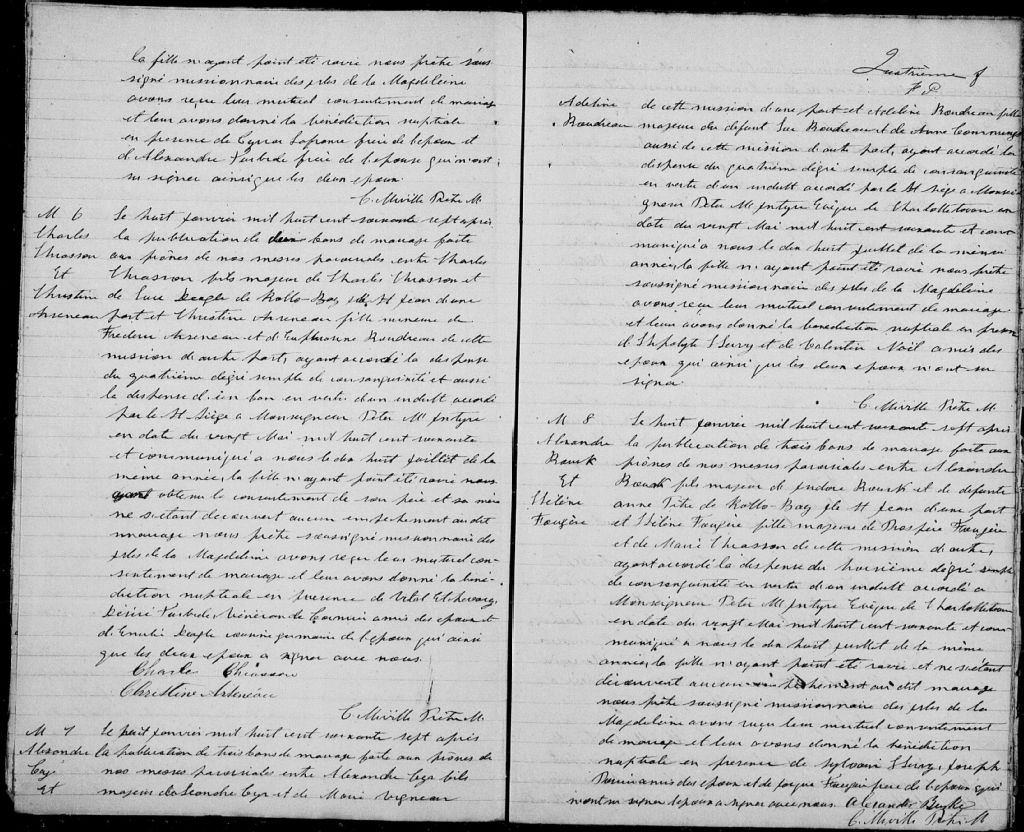 la fille n'ayant point été ravie nous prêtre sous
signé missionnaire des iles de la Magdeleine
avons reçu leur mutuel consentement de mariage
et leur avons donné la bénédiction nuptiale
en présence de Cyrus Lafrance frère de l'epoux et
d'Alexandre Turbide frère de l'epouse qui n'ont
su signer ainsi que les deux epoux.
C. Miville Prêtre M.
M 6
Charles
Chiasson
Et
Christine
Arseneau
Le huit Janvier mil huit cent soixante sept après
la publication de deux bans de mariage faite
aux prônes de nos messes paroissiales entre Charles
Chiasson fils majeur de Charles Chiasson et
de Luce Deagle de Rollo-Bay ile St Jean d'une
part et Christine Arseneau fille mineure de
Frederic Arseneau et d'Euphrosine Boudreau de cette
mission d'autre part, ayant accordé la dispense
du quatrième dégré simple de consanguinité et aussi
la dispense d'un ban en vertu d'un indult accordé
par le St Siège a Monseigneur Peter Mc Intyre
en date du vingt Mai mil huit cent soixante
et communiqué a nous le dix huit Juillet de la
même année, la fille n'ayant point été ravie nous
ayant obtenu le consentement de son père et sa mère
ne s'etant decouvert aucun empechement au dit
mariage nous prêtre soussigné missionnaire des
iles de la Magdeleine avons reçu leur mutuel con-
sentement de mariage et leur avons donné la béné-
diction nuptiale en présence de Vital Etcheverry,
Désiré Turbide, Vénéron de Cormier amis des epoux et
d'Emilie Deagle cousine germaine de l'epoux qui ainsi
que les deux epoux a signer avec nous.
Charle Chiasson
Christine Arseneau
C. Miville Prêtre M.
M 7
Alexandre
Cyr
Et
Le huit Janvier mil huit cent soixante sept après
la publication de trois bans de mariage faite aux prônes de
nos messes paroissiales entre Alexandre Cyr fils
majeur de Leandre Cyr et de Marie Vigneau
Quatrième f
F. P
Adeline
Boudreau
de cette mission d'une part et Adeline Boudreau fille
majeure du defunt Luc Boudreau et de Anne
aussi de cette mission d'autre part, ayant accordé la
dispense du quatrième dégré simple de consanguinité
en vertu d'un indult accordé par le St Siège a Monsei-
gneur Peter Mc Intyre Evêque de Charlottetown en
date du vingt Mai mil huit cent soixante et com-
muniqué a nous le dix huit Juillet de la même
année, la fille n'ayant point été ravie nous prêtre
soussigné missionnaire des iles de la Magdeleine
avons reçu leur mutuel consentement de mariage
et leur avons donné la bénédiction nuptiale en présence
d'Hypolyte et de Valentin Noël amis des
epoux qui ainsi que les deux epoux n'ont su
signer
C. Miville Prêtre M.
M 8
Alexandre
Bourk
Et
Hélène
Faugère
Le huit Janvier mil huit cent soixante sept après
la publication de trois bans de mariage faite aux
prônes de nos messes paroissiales entre Alexandre
Bourk fils majeur de Isidore Bourk et de defunte
anne Pitre de Rollo-Bay ile St Jean d'une part
et Hélène Faugère fille majeure de Prospère Faugère
et de Marie Chiasson de cette mission d'autre,
ayant accordé la dispense du troisième dégré simple
de consanguinité en vertu d'un indult accordé a
Monseigneur Peter Mc Intyre Evêque de Charlottetown
en date du vingt Mai mil huit cent soixante et com-
muniqué a nous le dix huit Juillet de la même
année, la fille n'ayant point été ravie et ne s'etant
découvert aucun empechement au dit mariage
nous prêtre soussigné missionnaire des iles de la
Magdeleine avons reçu leur mutuel consentement
de mariage et leur avons donné la bénédiction
nuptiale en présence de Sylvain Joseph
amis des epoux et de Faugère frère de l'epouse qui
n'ont su signer l'epoux a signer avec nous. Alexander Burke
C. Miville Prêtre M